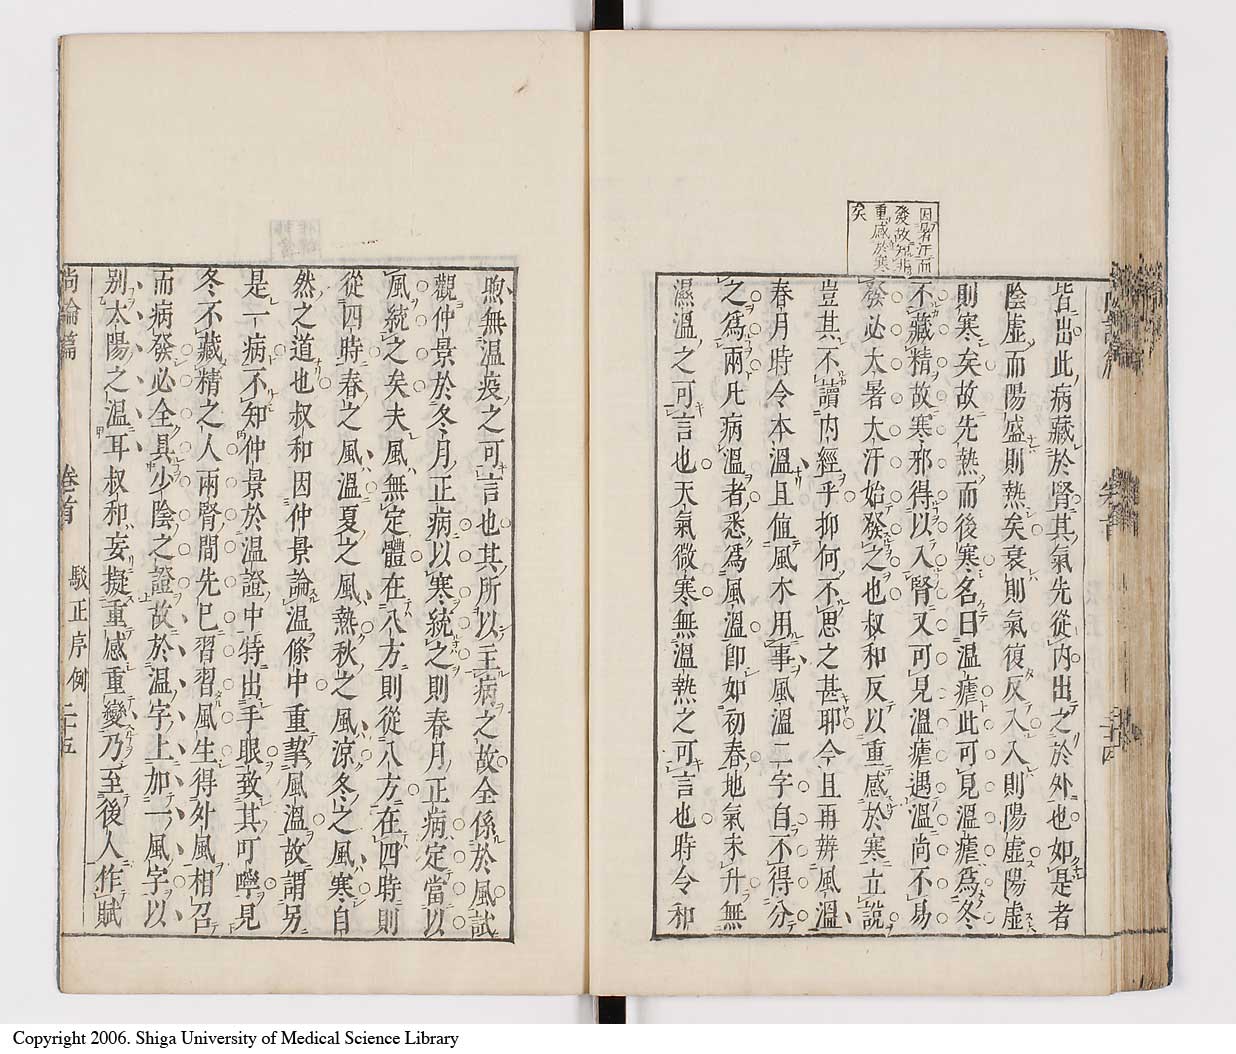 因暑汗而
發故知非
重感於寒
矣
皆出此病藏於腎其氣先從內出之於外也如是者
陰虛而陽盛則熱矣衰則氣復反入入則陽虛陽虛
則寒矣故先熱而後寒名曰溫瘧此可見溫瘧爲冬
不藏精故寒邪得以入腎又可見溫瘧遇溫尚不易
發必大暑大汗始發之也叔和反以重感於寒立說
豈其不讀內經乎抑何不思之甚耶今且再辨風溫
春月時令本溫且值風木用事風溫二字自不得分
之爲兩凡病溫者悉爲風溫卽如初春地氣未升無
濕溫之可言也天氣微寒無溫熱之可言也時令和
煦無溫疫之可言也其所以主病之故全係於風試
觀仲景於冬月正病以寒統之則春月正病定當以
風統之矣夫風無定體在八方則從八方在四時則
從四時春之風溫夏之風熱秋之風涼冬之風寒自
然之道也叔和因仲景論溫條中重挈風溫故謂另
是一病不知仲景於溫證中特出手眼致其叮嚀見
冬不藏精之人兩腎間先已習習風生得外風相召
而病發必全具少陰之證故於溫字上加一風字以
別太陽之溫耳叔和妄擬重感重變乃至後人作賦
尚論篇 卷首 駁正序例 二十五
Copyright 2006. Shiga University of Medical Science Library